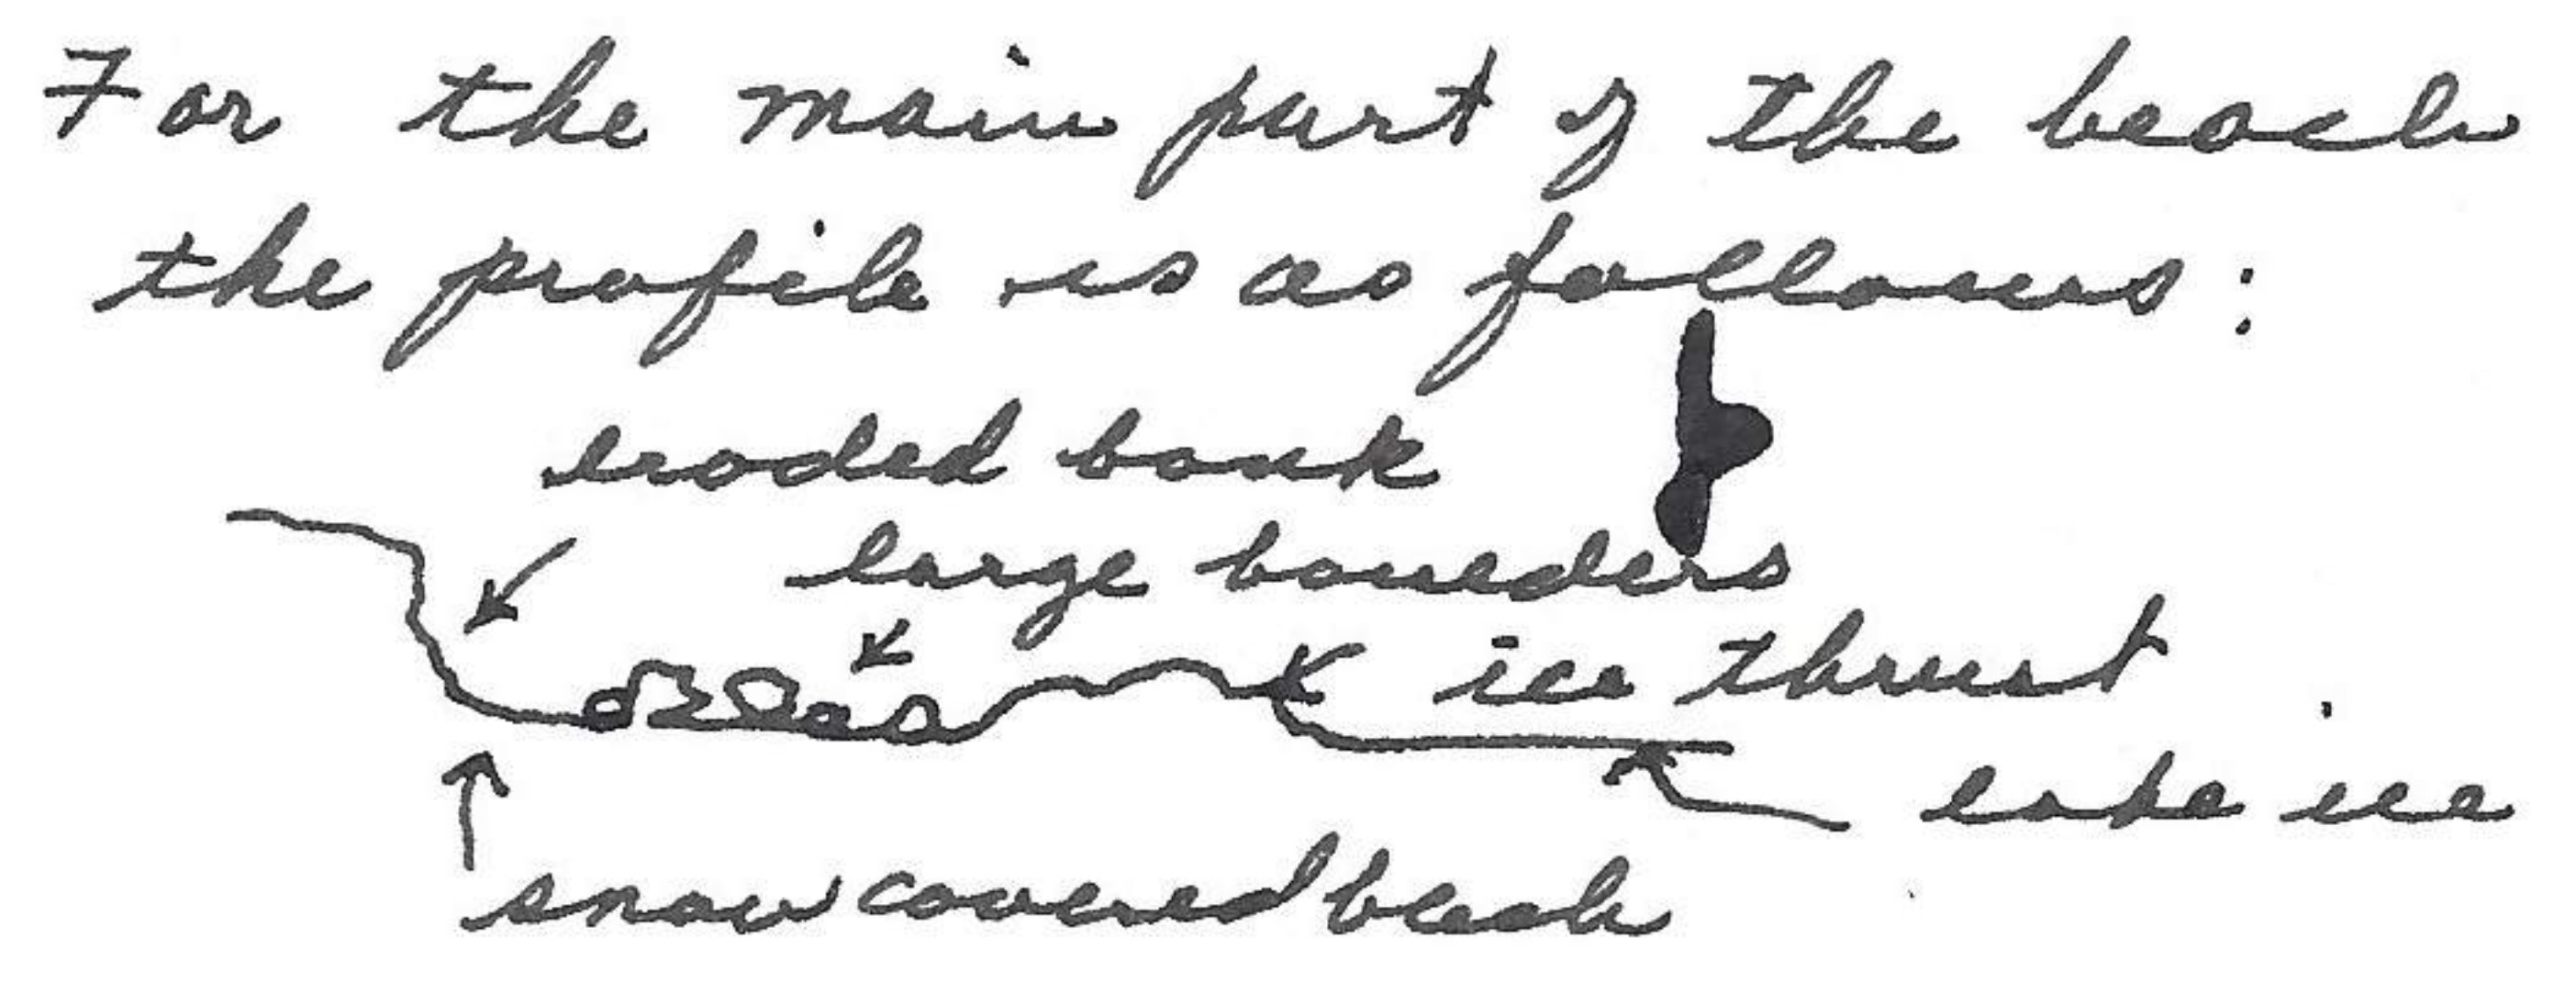 For the main part of the beach
the profile is as follows:
eroded bank
large boulders
ice thrust
lake ice
snow covered beach